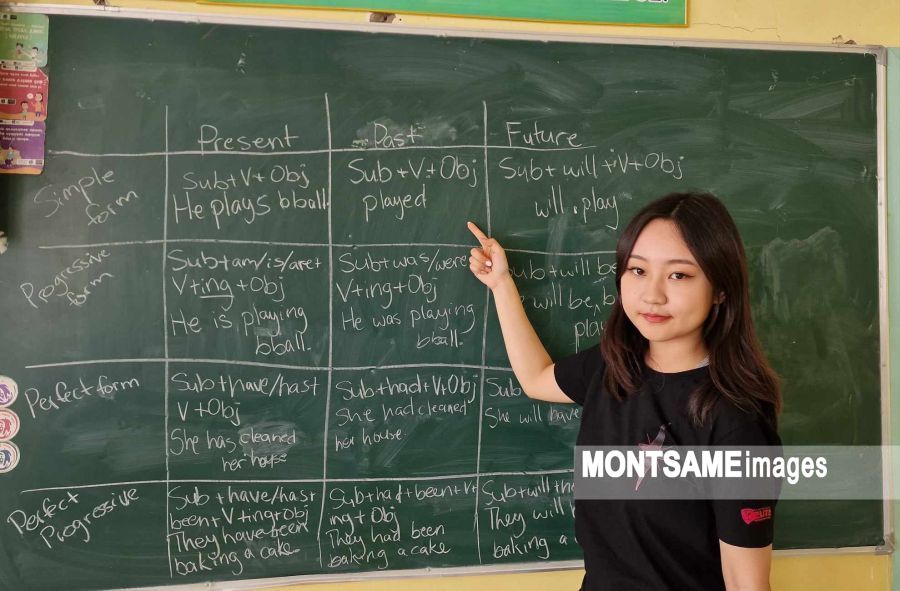 Present Past Future
Simple form
Sub+V+Obj
He plays bball.
Sub+V+Obj
played
Sub+will+V+Obj
will play
Progressive form
Sub+am/is/are+
V+ing+Obj
He is playing
bball.
Sub+was/were
V+ing+Obj
He was playing
bball.
Sub+will be
will be,
Perfect form
Sub+have/hast
V+Obj
She has cleaned
her house
Sub+had+V+Obj
She had cleaned
her house.
Sub
She will have
Perfect Progressive
Sub+have/has+
been+V+ing+Obj
They have been
baking a cake
Sub+had+been+V+
ing+Obj
They had been
baking a cake
Sub+will+
They will
baking a
MONTSAME images